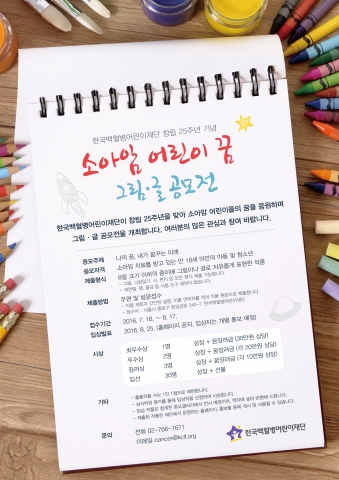 한국백혈병어린이재단 창립 25주년 기념
소아암 어린이 꿈
그림·글 공모전
한국백혈병어린이재단이 창립 25주년을 맞아 소아암 어린이들의 꿈을 응원하며
그림·글 공모전을 개최합니다. 여러분의 많은 관심과 참여 바랍니다.
공모주제 나의 꿈, 내가 꿈꾸는 미래
응모자격 소아암 치료를 받고 있는 만 18세 미만의 아동 및 청소년
제출형식 8절 크기 이하의 종이에 그림이나 글로 자유롭게 표현한 작품
제출방법 우편 및 방문접수
접수기간 2016. 7. 18. ~ 8. 17.
입상발표 2016. 8. 25. (홈페이지 공지, 입상자는 개별 통보 예정)
시상 최우수상 1명 상장 + 꿈장려금 (30만원 상당)
우수상 2명 상장 + 꿈장려금 (각 20만원 상당)
장려상 3명 상장 + 꿈장려금 (각 10만원 상당)
입선 30명 상장 + 선물
기타
문의 전화 02-766-7671
이메일 cancer@kclf.org
한국백혈병어린이재단